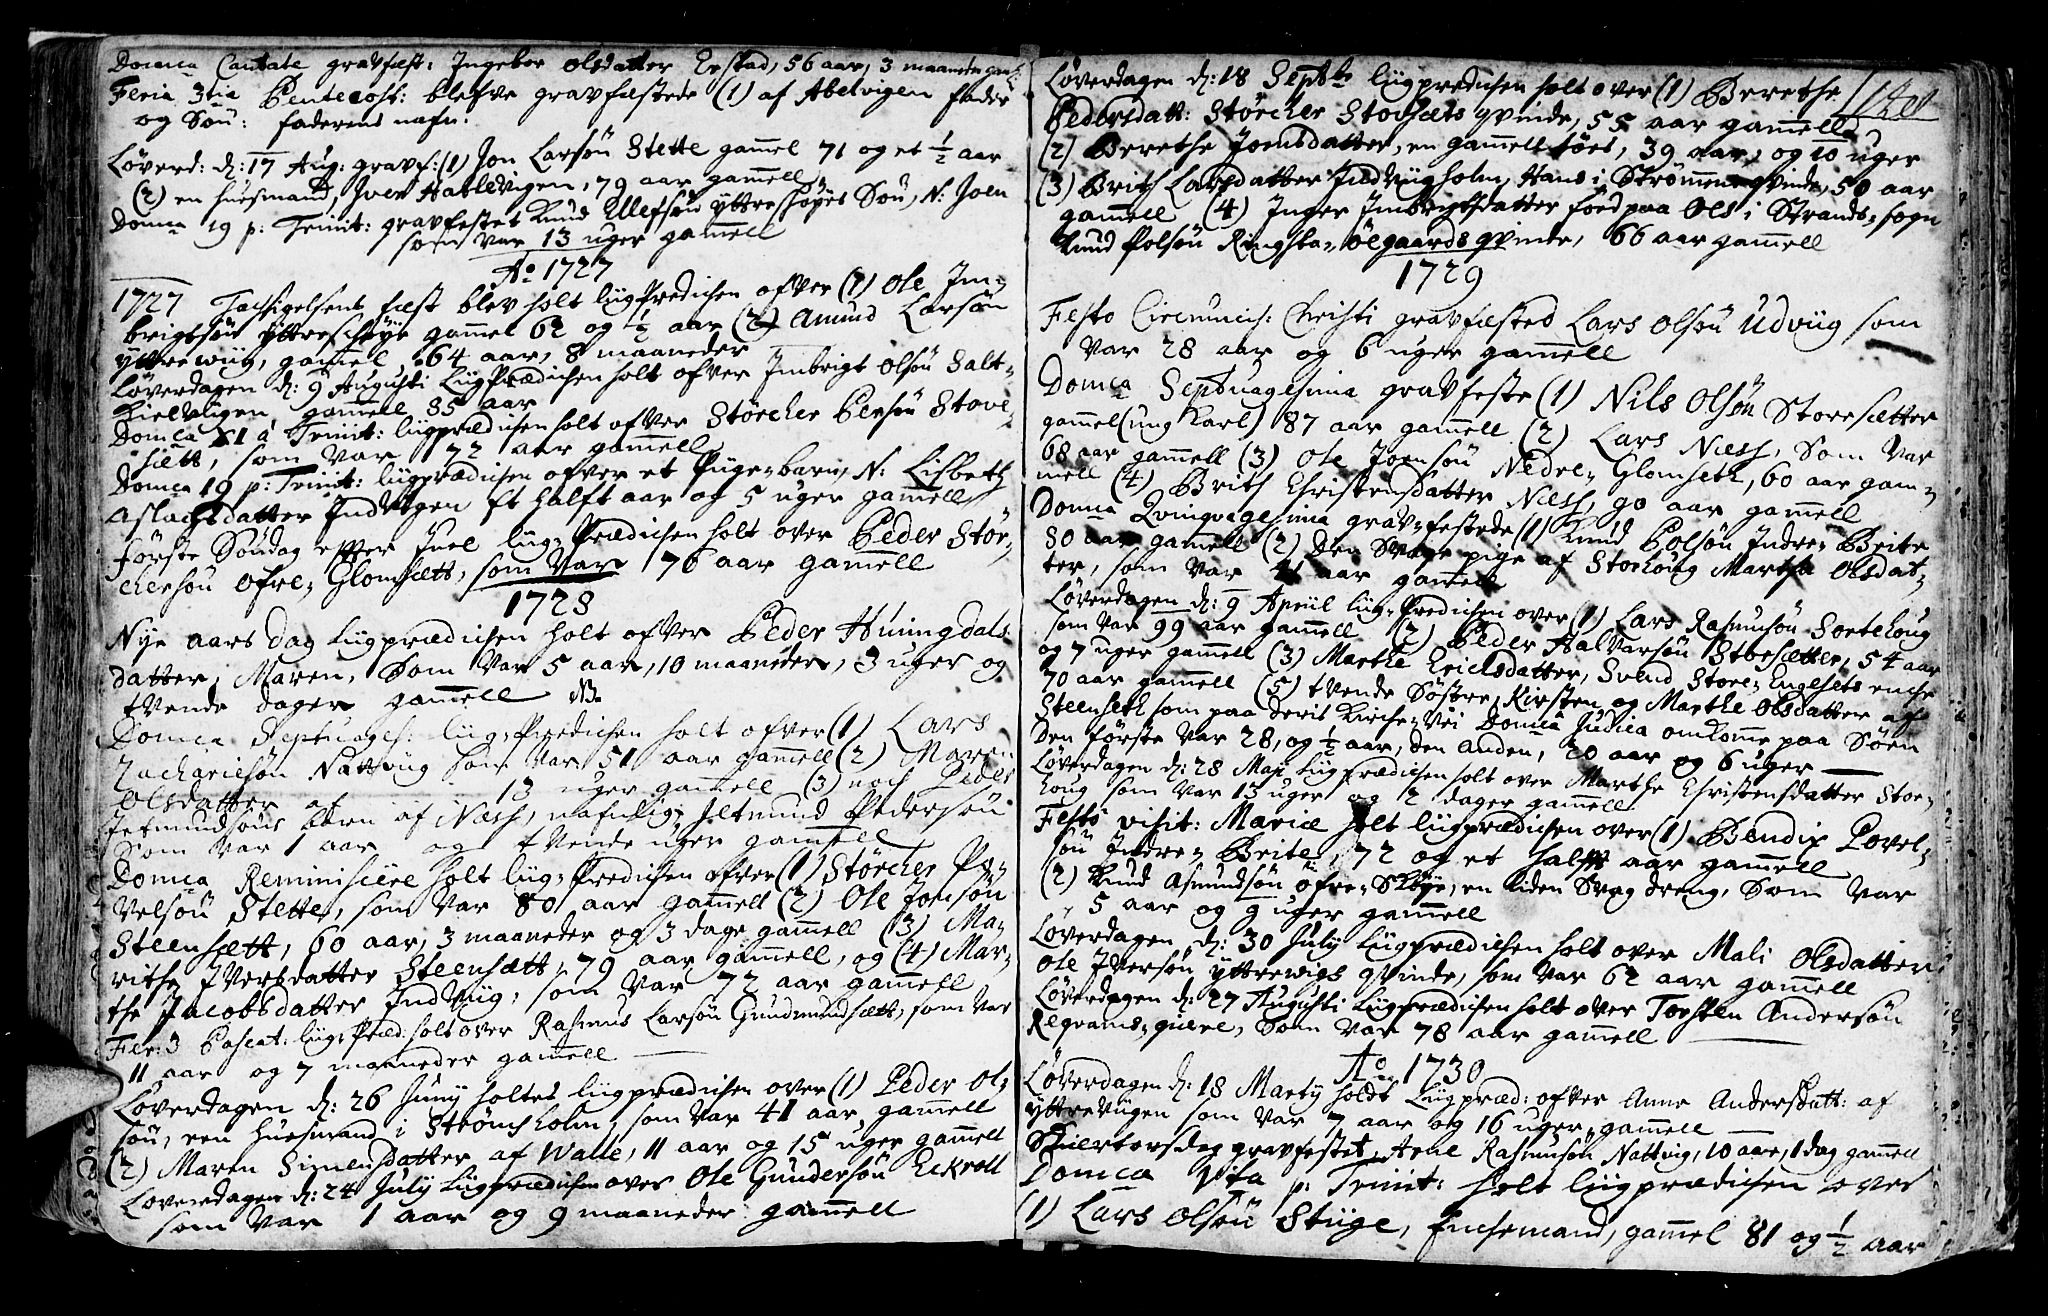 Domca Cantate gravfæst: Ingebor Olsdatter Erstad, 56 aar, 3 maaneder gam:
Feria 3tia Pentecost: blefve gravfæstede (1) af Abelvigen fader
og Søn: faderens nafn:
Løverd: d: 17 Aug: gravf: (1) Jon Larsøn Stette gamel 71 og et ½ aar
(2) en huesmand, Iver Hatlevigen, 79 aar gamell
Domca 19 p: Trinit: gravfestet Knud Ellefsøn Yttre Søn, N: Joen
som var 13 uger gamell
Ao 1727
1727 Tachsigelsens fæst blev holt liigprædichen ofver (1) Ole Im-
brigtsøn Yttreskøye gamel 62 og ½ aar (2) Amund Larsøn
Yttrewiig, gamel 64 aar, 8 maaneder
Løverdagen d: 9 Augusti LiigPrædichen holt ofver Imbrigt Olsøn Salt-
Kieldvigen gamell 85 aar
Domca XI á Trinit: liigprædichen holt ofver Størcher Persøn Stove-
sætt, som var 72 aar gamell
Domca 19 p: Trinit: liigprædichen ofver et Pigebarn, N: Lisbeth
Aslachsdatter Indvigen Et halft aar og 5 uger gamell
første Søndag efter Juel liig-Prædichen holt over Peder Stør-
chersøn Øfre-Glomsætt, som var 76 aar gamell
1728
Nye aars Dag Liigprædichen holt ofver Peder Huningdals
datter, Maren, som var 5 aar, 10 maaneder, 3 uger og
tvende dager gamell NB.
Domca Septuages: liig-Prædichen holt ofver (1) Lars
Zachariesøn Nattviig som var 51 aar gamell (2) Mare
Olsdatter af 13 uger gamell (3) noch Peder
Jetmundsøns barn af Næss, nafnlig Jetmund Pedersøn
som var 1 aar og tvende uger gamell
Domca Reminiscere holt liig-Prædichen ofver (1) Størcher Po-
velsøn Stette, som var 80 aar gamell (2) Ole Joensøn
Steensætt, 60 aar, 3 maaneder og 3 dage gamell (3) Ma-
rithe Iversdatter Steensætt, 79 aar gamell, og (4) Mar-
the Jacobsdatter Indviig, som var 72 aar gamell
Fer: 3 Pascat: liig-Præd: holt over Rasmus Larsøn Gundmundsætt, som var
11 aar og 7 maaneder gamell
Løverdagen d: 26 Juny holtes liigprædichen over (1) Peder Ol-
søn, een huesmand i Strømsholm, som var 41 aar gamell
(2) Maren Simensdatter af Walle, 11 aar og 15 uger gamell
Løverdagen d: 24 July Liigprædichen over Ole Gundersøn Eckroll
som var 1 aar og 9 maaneder gamell
Løverdagen d: 18 Septbr liigprædichen holt over (1) Berethe
Pedersdatt: Størcher Stovsæts qvinde, 55 aar gamell
(2) Berethe Joensdatter, en gamell tøes, 39 aar, og 10 uger
(3) Brith Larsdatter Indviigholm, Hans i Strømmen qvinde, 50 aar
gamell (4) Inger Imbrigtsdatter fød paa Ols i Strands-sogn
Knud Polsøn Ringsta-ølgaards qvinde, 66 aar gamell
1729
Festo Circumcis: Christi gravfæsted Lars Olsøn Udviig som
var 28 aar og 6 uger gamell
Domca Septuagesima gravfeste (1) Nils Olsøn Storesætter
gammel (ung Karl) 87 aar gamell (2) Lars Næss, som var
68 aar gamell (3) Ole Joensøn Nedre-Glomseth, 60 aar gam-
mell (4) Brith Christensdatter Næss, 90 aar gamell
Domca Qvinqvagesima grav-festede (1) Knud Polsøn Indre-Brite
80 aar gamell (2) Den Svage pige af Storhoug Martha Olsdat-
ter, som var 41 aar gamell
Løverdagen d: 9 Apriil liig-Prædichen over (1) Lars Rasmusøn Sortehoug
som var 99 aar gamell (2) Peder Halvarsøn Stoesætter, 54 aar
og 7 uger gamell (3) Marthe Erichsdatter, Svend Store-Engesets enche
70 aar gamell (5) tvende Søstre, Kirsten og Marthe Olsdatter af
Steenseth som paa deris Kirche-Vei Domca Judica omkomme paa Søen
Den første var 28, og ½ aar, den anden, 20 aar og 6 uger
Løverdagen d: 28 Maji Liigprædichen holt over Marthe Christensdatter Stor-
houg som var 13 uger og 2 dager gamell
Festo visit: Mariæ holt liigprædichen over (1) Bendix Povel-
søn Indre-Brite, 72 og et halft aar gamell
(2) Knud Asmundsøn øfre-Skøye, en liden Svag dreng, som var
5 aar og 9 uger gamell
Løverdagen d: 30 July Liigprædichen holt over Mali Olsdatter
Ole Iversøn Yttrewigs qvinde, som var 62 aar gamell
Løverdagen d: 27 Augusti Liigprædichen holt over Torsten Andersøn
Regrams-qvere, som var 78 aar gamell
Ao 1730
Løverdagen d: 18 Marty holdt Liigpræd: ofver Anne Andersdatt: af
Yttrevigen som var 7 aar og 16 uger gamell
Skiertorsdag gravfestet, Arne Rasmusøn Nattvig, 10 aar, 1 dag gamell
Domca Vta p: Trinit: holt liigprædichen over
(1) Lars Olsøn Stiige, Ensemand, gamel 81 og ½ aar